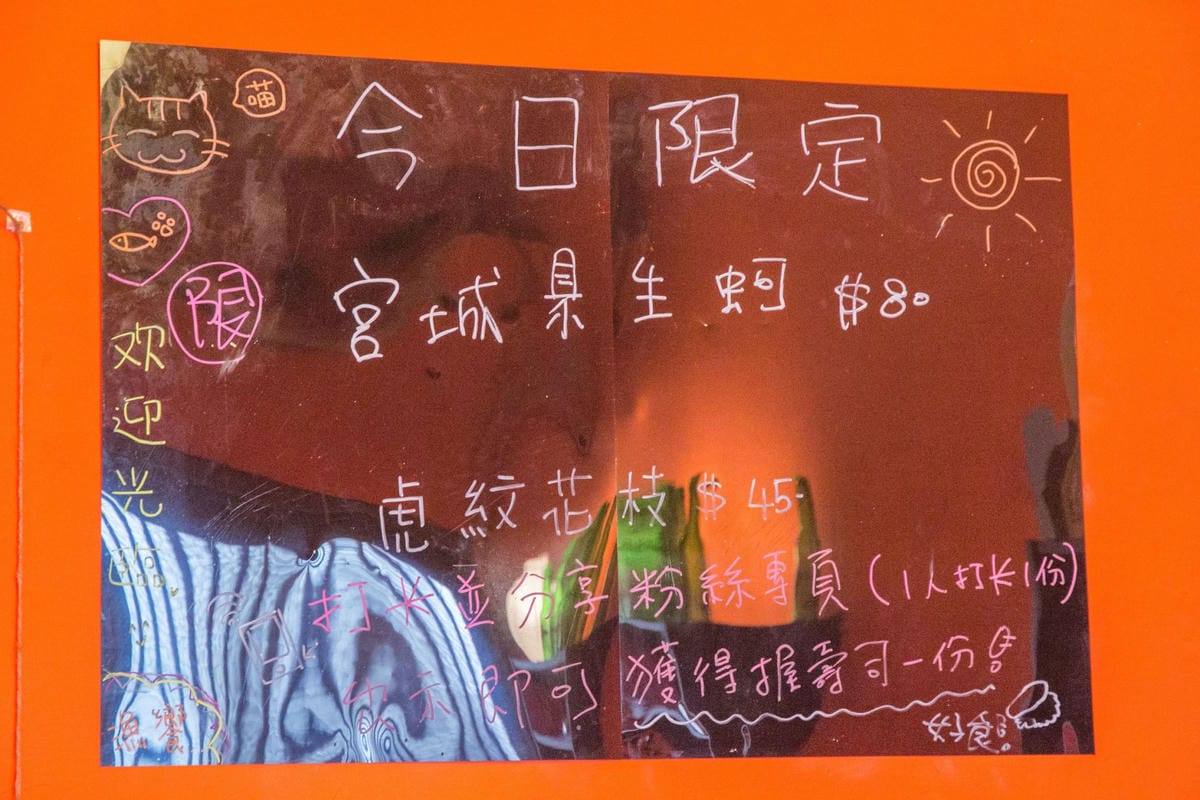 喵
今日限定
限
宮城県生蚵 $80
欢迎光臨
虎紋花枝 $45-
打卡並分享粉絲專頁(1人打卡1份)
出示即可獲得握壽司一份!
魚饗